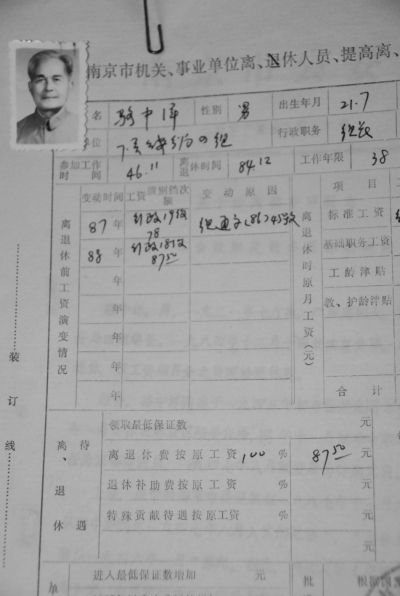 南京市机关、事业单位离、退休人员、提高离、
名 骆中洋 性别 男 出生年月 21.7
位 行政职务 组员
参加工作时间 46.11 离退休时间 84.12 工作年限 38
变动时间 工资级别档次额 变动原因 项目
离退休前工资演变情况
87年 行政19级 78
88年 行政18级 87.50
年
年
年
年
离退休时原月工资(元)
标准工资
基础职务工资
工龄津贴
教、护龄津贴
合计
装订线
离、退休待遇
领取最低保证数 元
离退休费按原工资 100 % 87.50 元
退休补助费按原工资 % 元
特殊贡献待遇按原工资 % 元
单 进入最低保证数增加 元 批 根据国发